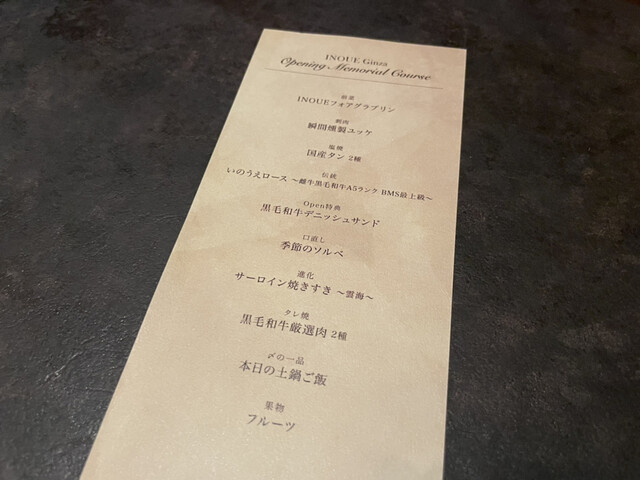 INOUE Ginza
Opening Memorial Course
前菜
INOUEフォアグラプリン
瞬間燻製ユッケ
塩焼
国産タン 2種
伝統
いのうえロース ～雌牛黒毛和牛A5ランク BMS最上級～
Open特典
黒毛和牛デニッシュサンド
口直し
季節のソルベ
進化
サーロイン焼きすき ～雲海～
タレ焼
黒毛和牛厳選肉 2種
〆の一品
本日の土鍋ご飯
果物
フルーツ